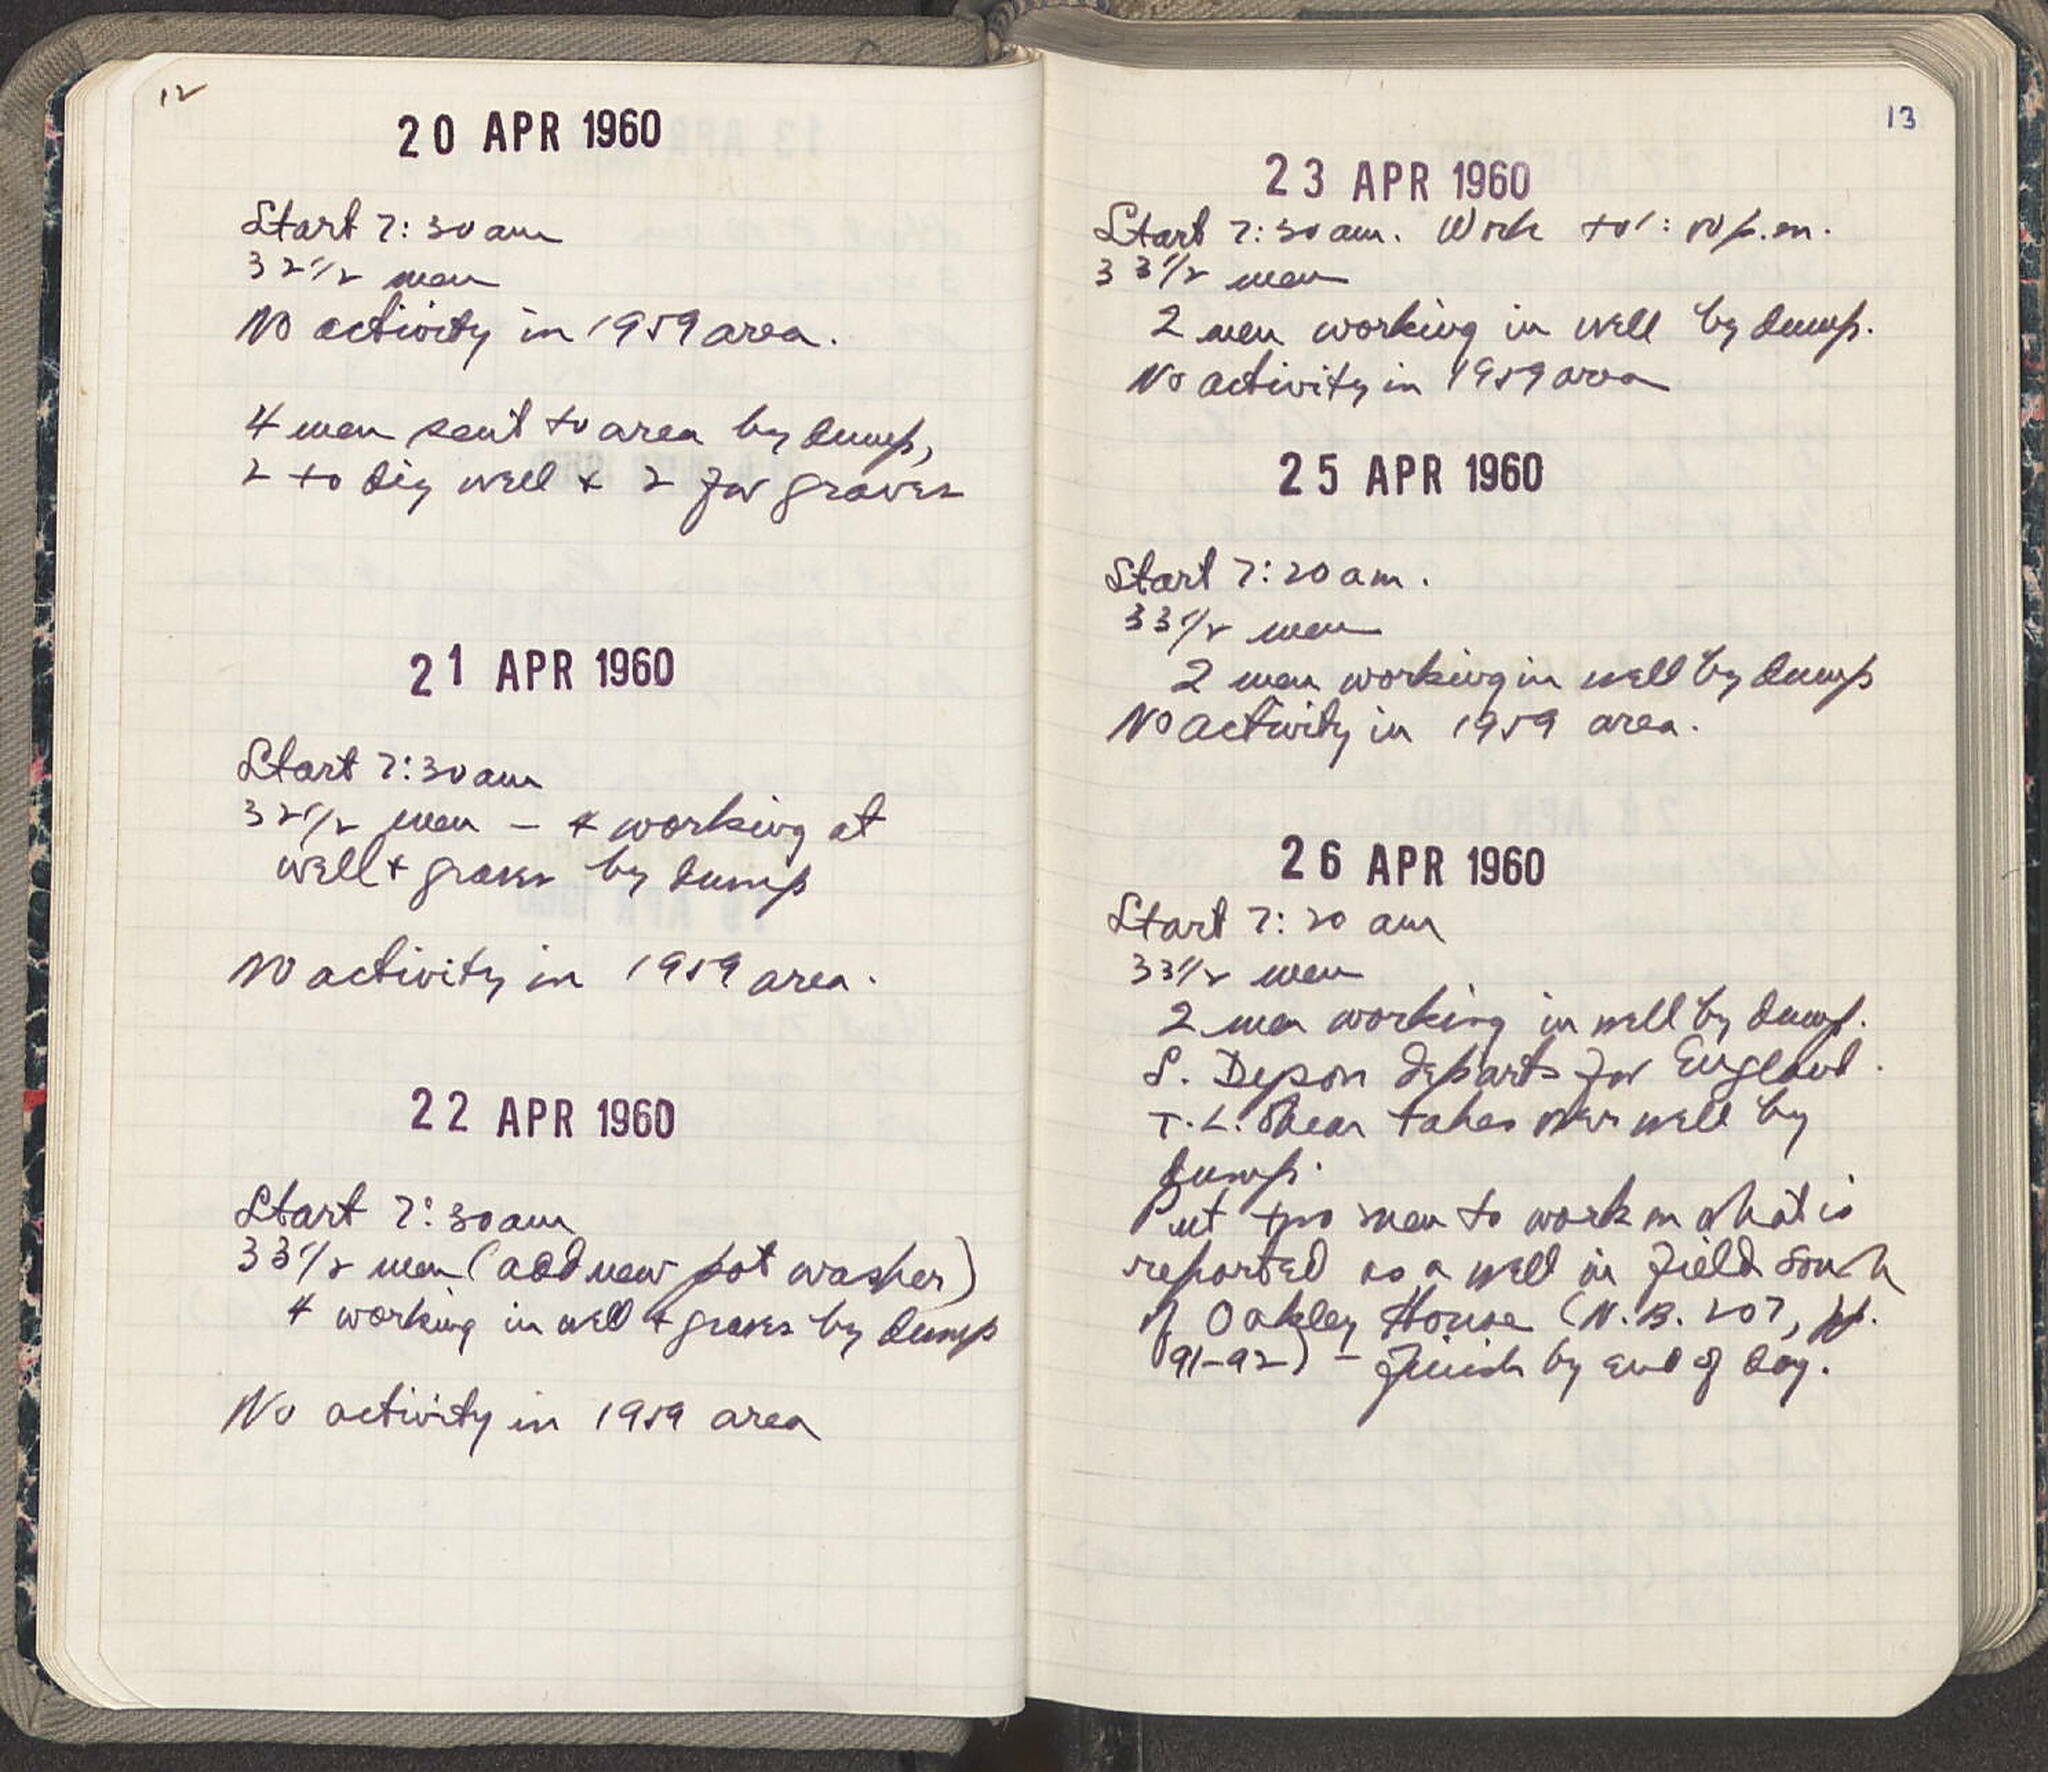 12
20 APR 1960
Start 7:30 am
32 1/2 men
No activity in 1959 area.
4 men sent to area by dump,
2 to dig well + 2 for graves
21 APR 1960
Start 7:30 am
32 1/2 men – 4 working at
well + graves by dump
No activity in 1959 area.
22 APR 1960
Start 7:30 am
33 1/2 men (add new pot washer)
4 working in well + graves by dump
No activity in 1959 area
13
23 APR 1960
Start 7:30 am. Work to 1:00 p.m.
33 1/2 men
2 men working in well by dump.
No activity in 1959 area
25 APR 1960
Start 7:20 am.
33 1/2 men
2 men working in well by dump
No activity in 1959 area.
26 APR 1960
Start 7:20 am
33 1/2 men
2 men working in well by dump.
S. Dyson departs for England.
T.L. Shear takes over well by
dump.
Put two men to work on what is
reported as a well in field south
of Oakley House (N.B. 207, pp.
91-92) – finish by end of day.